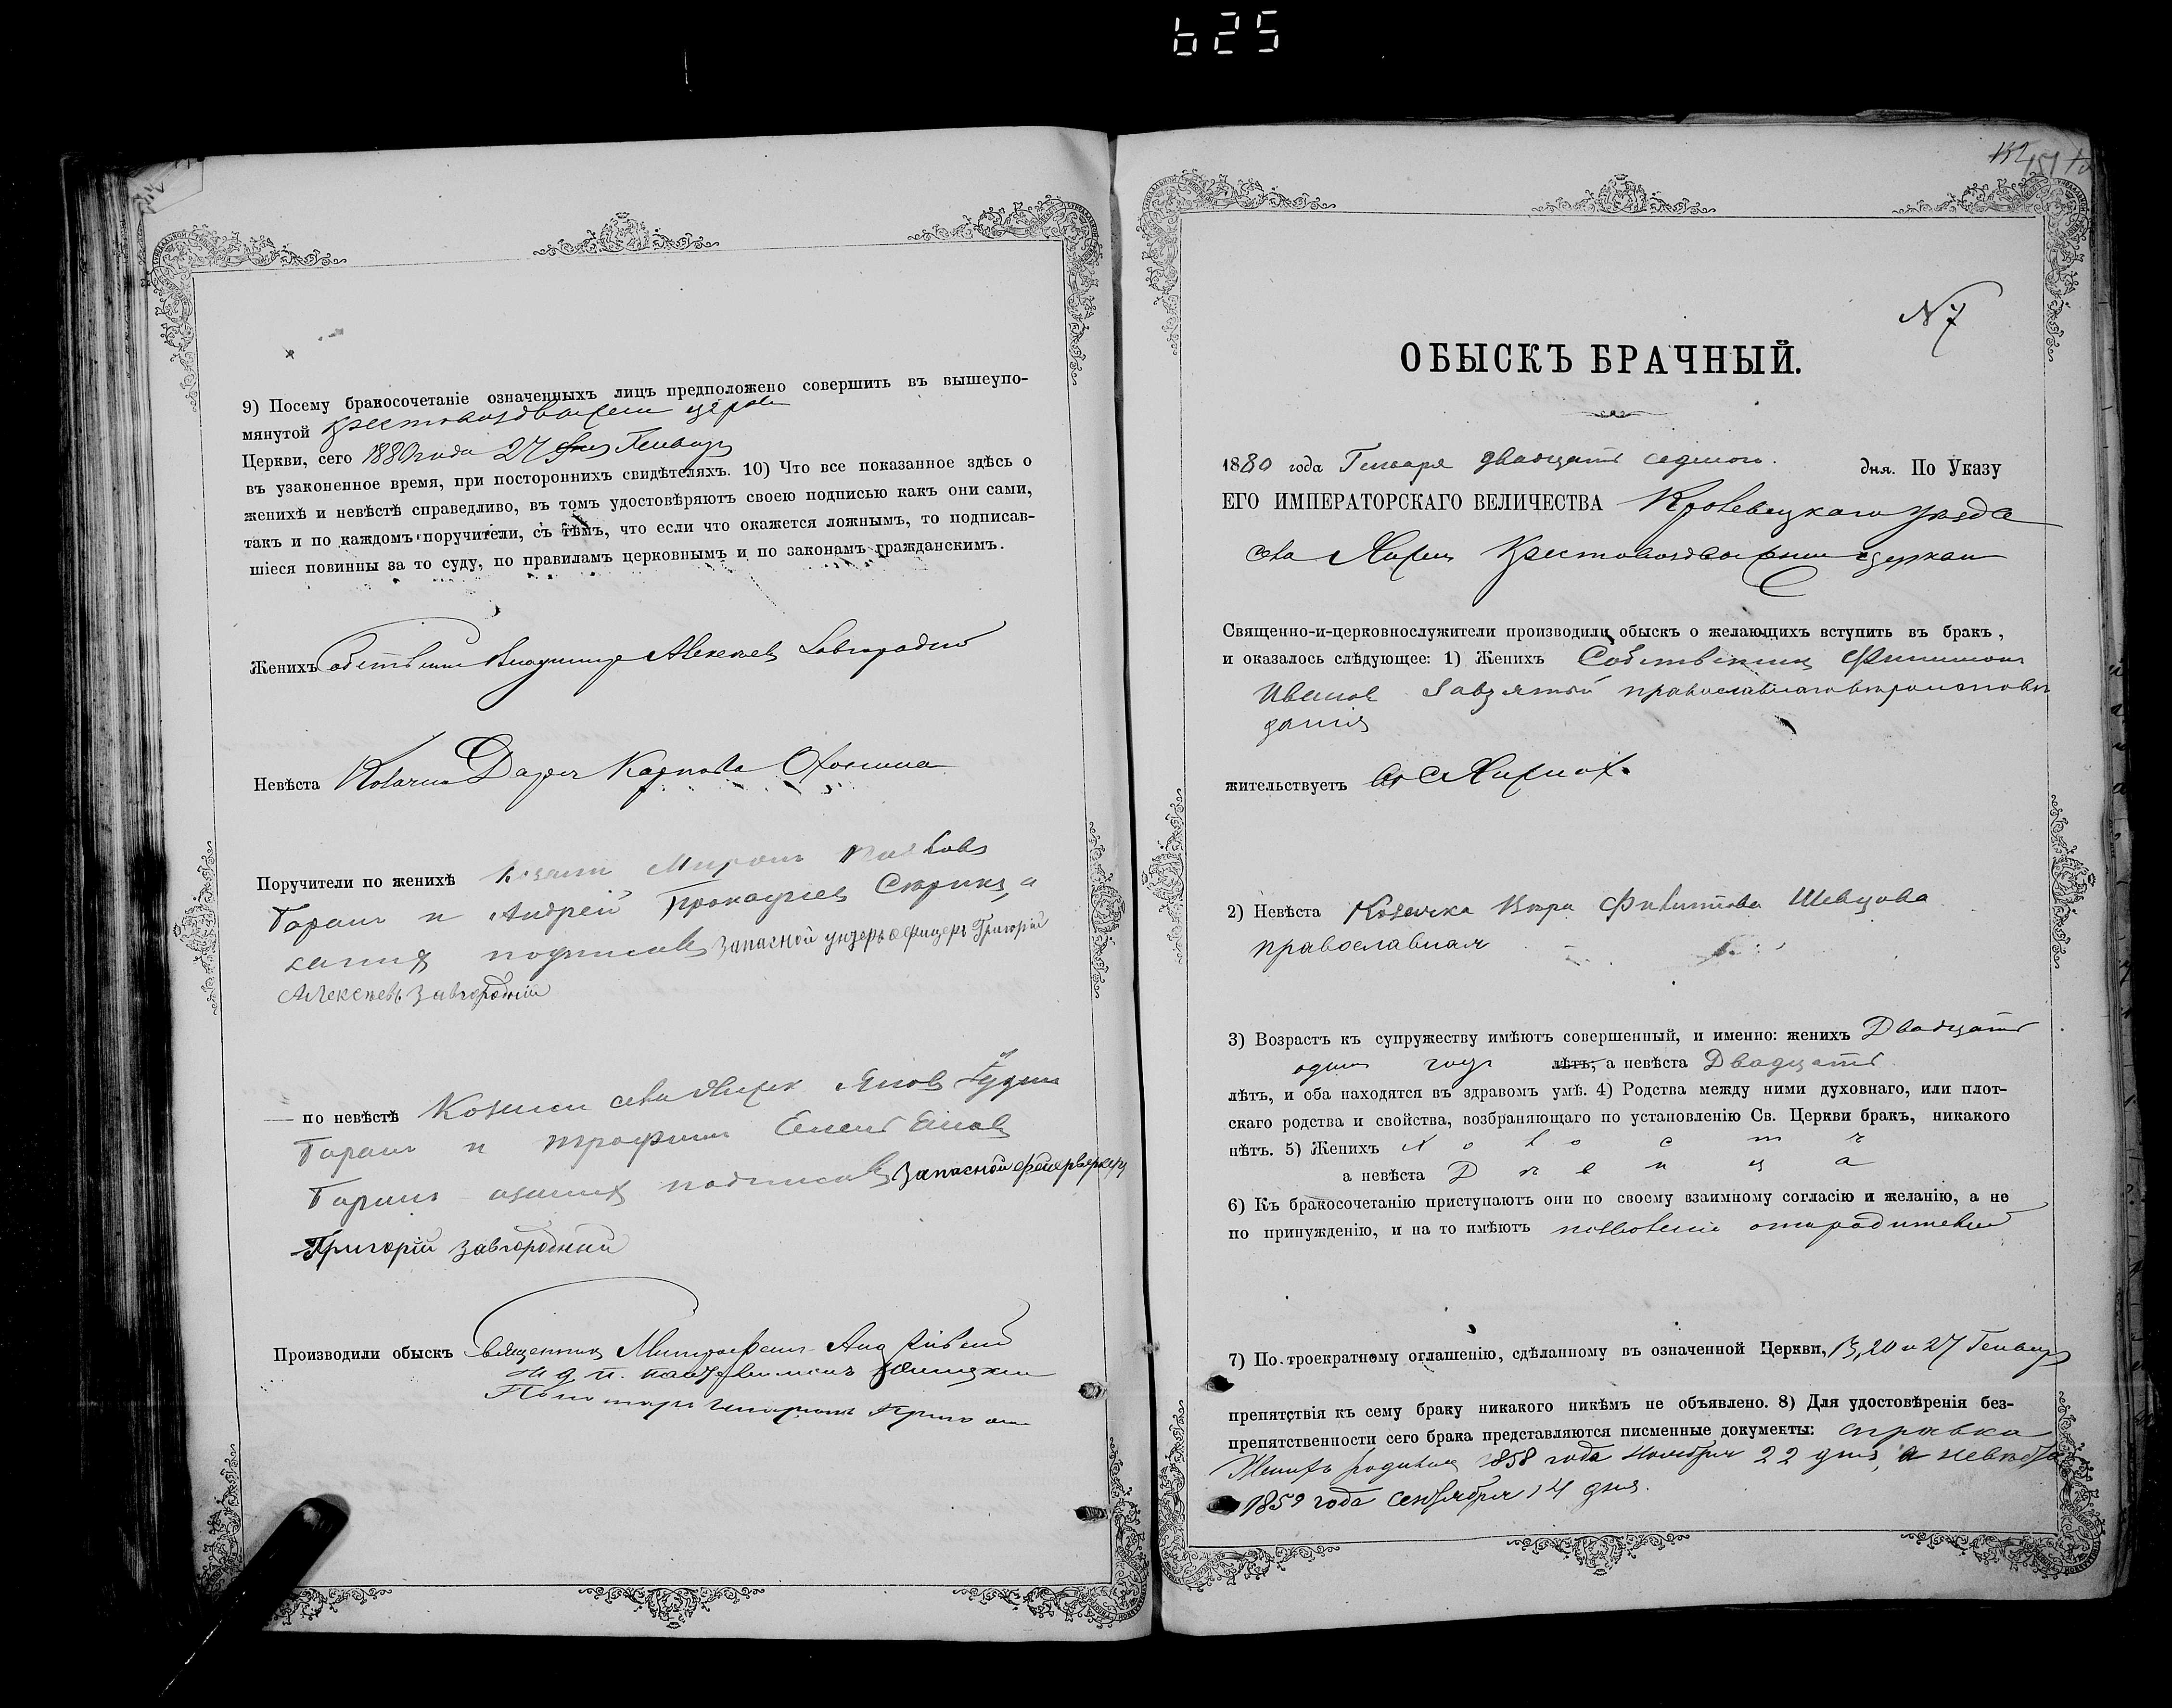 625
9) Посему бракосочетаніе означенныхъ лицъ предположено совершить въ вышеупо-
мянутой Крестовоздвижен церкви
Церкви, сего 1880 года 27 дня Генваря
въ узаконенное время, при постороннихъ свидѣтеляхъ. 10) Что все показанное здѣсь о
женихѣ и невѣстѣ справедливо, въ томъ удостовѣряютъ своею подписью какъ они сами,
такъ и по каждомъ поручители, съ тѣмъ, что если что окажется ложнымъ, то подписав-
шіеся повинны за то суду, по правиламъ церковнымъ и по законамъ гражданскимъ.
Женихъ Владимиръ Алексеевъ Завгородній
Невѣста Дарья Карпова
Поручители по женихѣ Козаки Миронъ
и Андрей Прокофіевъ
подписалъ Запасной ундеръ офицеръ Григорій
Алексѣевъ Завгородній
— по невѣстѣ Козаки села Яковъ
и Трофимъ
подписалъ Запасной фейерверкеръ
Григорій Завгородній
Производили обыскъ Священникъ Митрофанъ
Пономарь
152 151
N 7
ОБЫСКЪ БРАЧНЫЙ.
1880 года Генваря двадцать седмого дня. По Указу
ЕГО ИМПЕРАТОРСКАГО ВЕЛИЧЕСТВА Кролевецкаго уѣзда
села Крестовоздвижен церкви
Священно-и-церковнослужители производили обыскъ о желающихъ вступить въ бракъ,
и оказалось слѣдующее: 1) Женихъ Собственникъ Филимонъ
Ивановъ Завзятый православнаго вѣроисповѣ
данія
жительствуетъ въ с.
2) Невѣста Козачка Вѣра Шевцова
православная
3) Возрастъ къ супружеству имѣютъ совершенный, и именно: женихъ Двадцать
одинъ годъ лѣтъ, а невѣста Двадцать
лѣтъ, и оба находятся въ здравомъ умѣ. 4) Родства между ними духовнаго, или плот-
скаго родства и свойства, возбраняющаго по установленію Св. Церкви бракъ, никакого
нѣтъ. 5) Женихъ Холостъ
а невѣста Дѣвица
6) Къ бракосочетанію приступаютъ они по своему взаимному согласію и желанію, а не
по принужденію, и на то имѣютъ позволеніе отъ родителей
7) По троекратному оглашенію, сдѣланному въ означенной Церкви, 13, 20 и 27 Генваря
препятствія къ сему браку никакого никѣмъ не объявлено. 8) Для удостовѣренія без-
препятственности сего брака представляются писменные документы: справка
Женихъ родился 1858 года ноября 22 дня, а невѣста
1859 года сентября 14 дня.